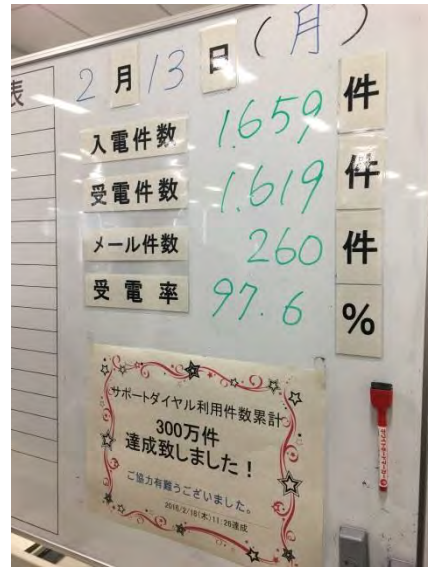 表
2月13日(月)
入電件数 1,659件
受電件数 1,619件
メール件数 260件
受電率 97.6%
サポートダイヤル利用件数累計
300万件
達成致しました！
ご協力有難うございました。
2016/2/18(木)11:20達成